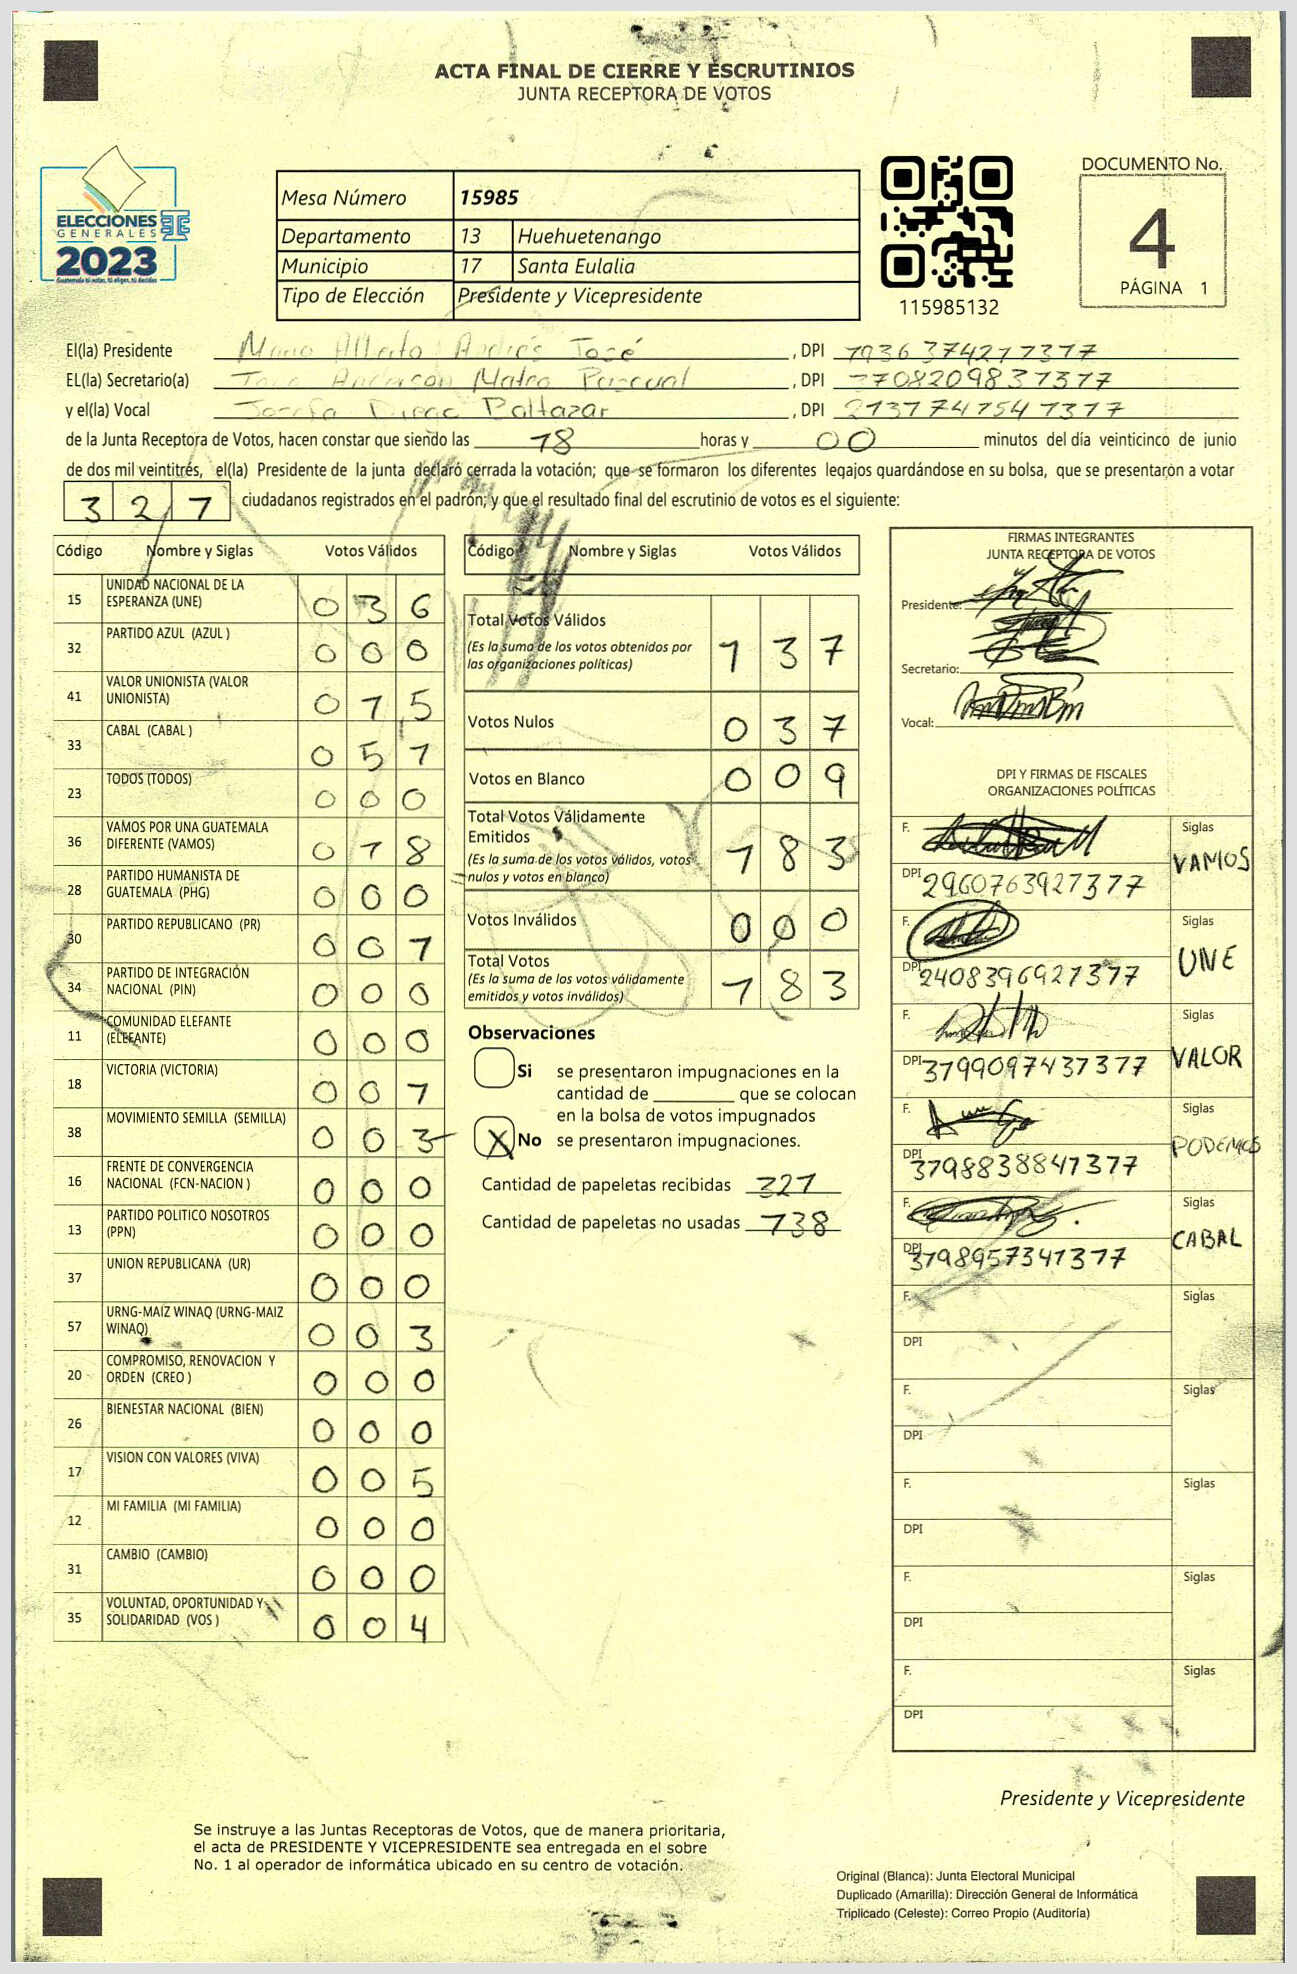 ACTA FINAL DE CIERRE Y ESCRUTINIOS
JUNTA RECEPTORA DE VOTOS
ELECCIONES
GENERALES
2023
Guatemala tú votas, tú eliges, tú decides
Mesa Número 15985
Departamento 13 Huehuetenango
Municipio 17 Santa Eulalia
Tipo de Elección Presidente y Vicepresidente
115985132
DOCUMENTO No.
4
PÁGINA 1
El(la) Presidente Mario Alberto Andrés José , DPI 1936374211317
EL(la) Secretario(a) Jose Anderson Mateo Pascual , DPI 3708209831317
y el(la) Vocal Josefa Diego Baltazar , DPI 2131741541317
de la Junta Receptora de Votos, hacen constar que siendo las 18 horas y 00 minutos del día veinticinco de junio
de dos mil veintitrés, el(la) Presidente de la junta declaró cerrada la votación; que se formaron los diferentes legajos guardándose en su bolsa, que se presentarón a votar
321 ciudadanos registrados en el padrón; y que el resultado final del escrutinio de votos es el siguiente:
Código Nombre y Siglas Votos Válidos
15 UNIDAD NACIONAL DE LA
ESPERANZA (UNE) 0 3 6
32 PARTIDO AZUL (AZUL ) 0 0 0
41 VALOR UNIONISTA (VALOR
UNIONISTA) 0 1 5
33 CABAL (CABAL ) 0 5 1
23 TODOS (TODOS) 0 0 0
36 VAMOS POR UNA GUATEMALA
DIFERENTE (VAMOS) 0 1 8
28 PARTIDO HUMANISTA DE
GUATEMALA (PHG) 0 0 0
30 PARTIDO REPUBLICANO (PR) 0 0 1
34 PARTIDO DE INTEGRACIÓN
NACIONAL (PIN) 0 0 0
11 COMUNIDAD ELEFANTE
(ELEFANTE) 0 0 0
18 VICTORIA (VICTORIA) 0 0 1
38 MOVIMIENTO SEMILLA (SEMILLA) 0 0 3
16 FRENTE DE CONVERGENCIA
NACIONAL (FCN-NACION ) 0 0 0
13 PARTIDO POLITICO NOSOTROS
(PPN) 0 0 0
37 UNION REPUBLICANA (UR) 0 0 0
57 URNG-MAIZ WINAQ (URNG-MAIZ
WINAQ) 0 0 3
20 COMPROMISO, RENOVACION Y
ORDEN (CREO ) 0 0 0
26 BIENESTAR NACIONAL (BIEN) 0 0 0
17 VISION CON VALORES (VIVA) 0 0 5
12 MI FAMILIA (MI FAMILIA) 0 0 0
31 CAMBIO (CAMBIO) 0 0 0
35 VOLUNTAD, OPORTUNIDAD Y
SOLIDARIDAD (VOS ) 0 0 4
Código Nombre y Siglas Votos Válidos
Total Votos Válidos
(Es la suma de los votos obtenidos por
las organizaciones políticas) 1 3 7
Votos Nulos 0 3 7
Votos en Blanco 0 0 9
Total Votos Válidamente
Emitidos
(Es la suma de los votos válidos, votos
nulos y votos en blanco) 1 8 3
Votos Inválidos 0 0 0
Total Votos
(Es la suma de los votos válidamente
emitidos y votos inválidos) 1 8 3
Observaciones
Si se presentaron impugnaciones en la
cantidad de ________ que se colocan
en la bolsa de votos impugnados
X No se presentaron impugnaciones.
Cantidad de papeletas recibidas 321
Cantidad de papeletas no usadas 138
FIRMAS INTEGRANTES
JUNTA RECEPTORA DE VOTOS
Presidente:
Secretario:
Vocal:
DPI Y FIRMAS DE FISCALES
ORGANIZACIONES POLÍTICAS
F. Siglas
DPI 2960763921317 VAMOS
F. Siglas
DPI 2408396921317 UNE
F. Siglas
DPI 3799097431317 VALOR
F. Siglas
DPI 3798838841317 PODEMOS
F. Siglas
DPI 3798957341317 CABAL
F. Siglas
DPI
F. Siglas
DPI
F. Siglas
DPI
F. Siglas
DPI
F. Siglas
DPI
Presidente y Vicepresidente
Se instruye a las Juntas Receptoras de Votos, que de manera prioritaria,
el acta de PRESIDENTE Y VICEPRESIDENTE sea entregada en el sobre
No. 1 al operador de informática ubicado en su centro de votación.
Original (Blanca): Junta Electoral Municipal
Duplicado (Amarilla): Dirección General de Informática
Triplicado (Celeste): Correo Propio (Auditoría)